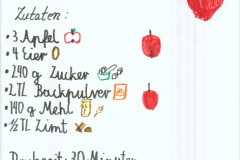 Zutaten:
• 3 Äpfel
• 4 Eier
• 240 g Zucker
• 2 TL Backpulver
• 140 g Mehl
• ½ TL Zimt
Backzeit: 30 Minuten